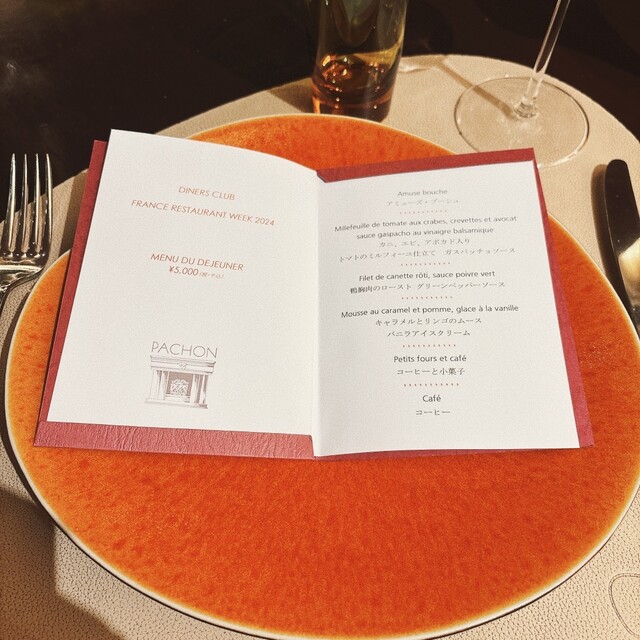 DINERS CLUB
FRANCE RESTAURANT WEEK 2024
MENU DU DEJEUNER
¥5,000
PACHON
Amuse bouche
アミューズ・ブーシュ
Millefeuille de tomate aux crabes, crevettes et avocat
sauce gaspacho au vinaigre balsamique
カニ、エビ、アボカド入り
トマトのミルフィーユ仕立て ガスパッチョソース
Filet de canette rôti, sauce poivre vert
鴨胸肉のロースト グリーンペッパーソース
Mousse au caramel et pomme, glace à la vanille
キャラメルとリンゴのムース
バニラアイスクリーム
Petits fours et café
コーヒーと小菓子
Café
コーヒー